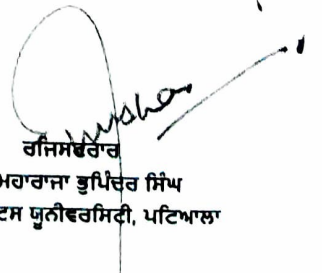 ਰਜਿਸਟਰਾਰ
ਮਹਾਰਾਜਾ ਭੁਪਿੰਦਰ ਸਿੰਘ
ਟਸ ਯੂਨੀਵਰਸਿਟੀ, ਪਟਿਆਲਾ